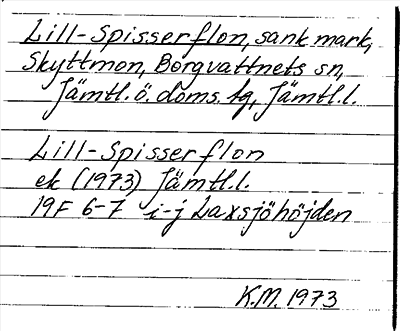 Lill-Spisserflon, sank mark,
Skyttmon, Borgvattnets sn,
Jämtl. ö. doms. tg, Jämtl. l.
Lill-Spisserflon
ek (1973) Jämtl. l.
19F 6-7 i-j Laxsjöhöjden
K.M. 1973